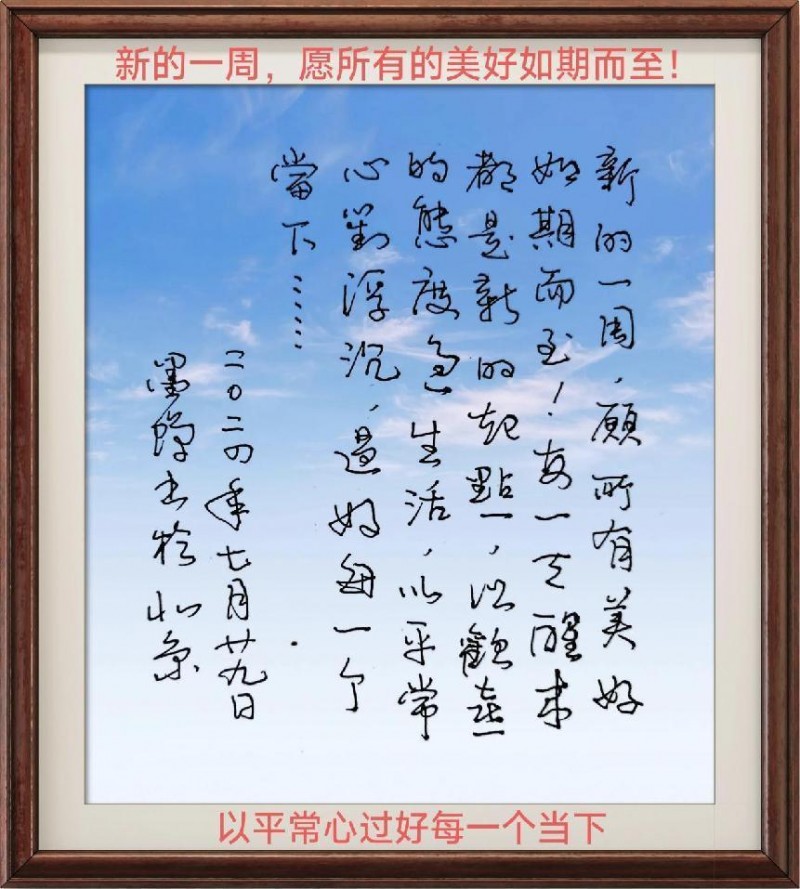 新的一周，愿所有的美好如期而至！
新的一周，願所有美好
如期而至！每一天醒来
都是新的起點，以觀喜
的態度过生活，以平常
心對浮沉，過好每一个
當下……
二〇二四年七月廿九日
墨蟬书於北京
以平常心过好每一个当下